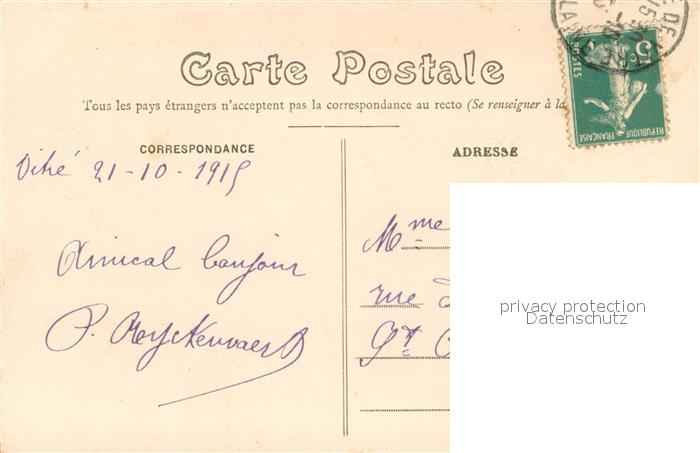 Carte Postale
Tous les pays étrangers n'acceptent pas la correspondance au recto (Se renseigner à la
CORRESPONDANCE
ADRESSE
Vitré 21-10-1915
Amical bonjour
P.
Mme
rue
St
privacy protection
Datenschutz
5c
POSTES
REPUBLIQUE FRANÇAISE